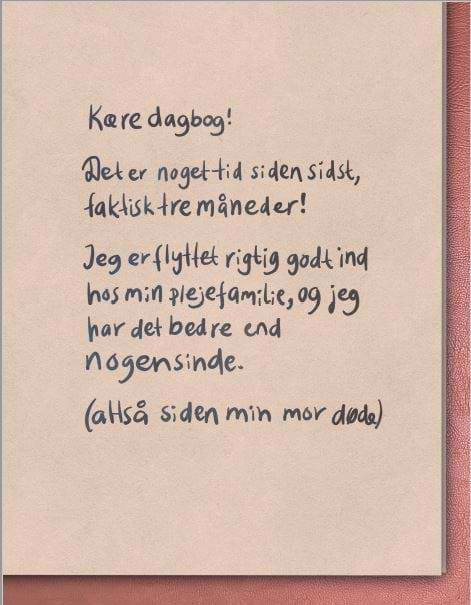 Kære dagbog!
Det er noget tid siden sidst,
faktisk tre måneder!
Jeg er flyttet rigtig godt ind
hos min plejefamilie, og jeg
har det bedre end
nogensinde.
(altså siden min mor døde)